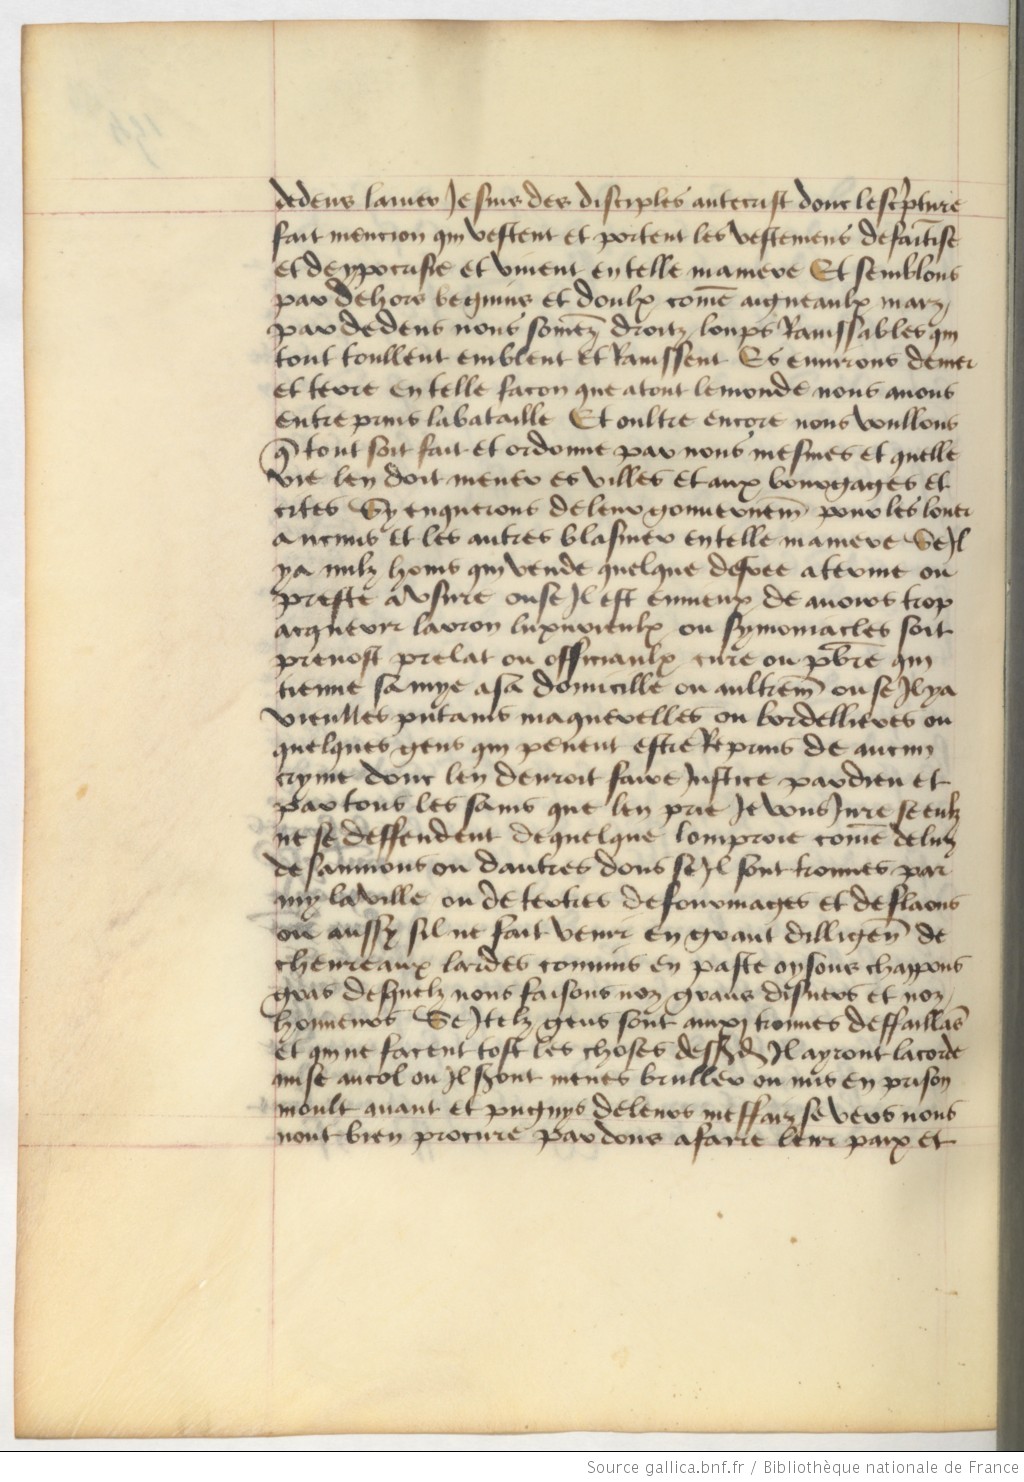 dedens lamer Je suis des disciples antecrist donc lescripture
fait mencion qui vestent et portent les vestemens defaintise
et deypocrisie et vivent en telle maniere Et semblons
par dehors begnins et doulx come aigneaulx marz
par dedens nous somez droitz loups Ravissables qui
tout toullent emblent et Ravissent Es environs demer
et terre en telle facon que atout lemonde nous avons
entre prins labataille Et oultre encore nous voullons
q̄ tout soit fait et ordonne par nous mesmes et quelle
vie len doit mener es villes et aux bourgages et
cites Sy enquerons deleur gouvernem̄ pour les louer
aucuns et les autres blasmer en telle maniere Se Jl
ya nulz homs qui vende quelque desree aterme ou
preste a usure ou se Jl est envieux de avoirs trop
acquerir larron luxurieulx ou symoniacles soit
prevost prelat ou officiaulx cure ou pb̄re qui
tienne samye asa domicille ou aultrem̄ ou se Jl ya
vieulles putains maquerelles ou bordellieres ou
quelques gens qui pevent estre Reprins de aucun
cryme donc len devroit faire Justice par dieu et
par tous les sains que len prie Je vous Jure se eulz
ne se deffendent de quelque lomproie come de luz
de saumons ou dautres dons se Jl sont trouves par
my la ville ou de tertres de fourmages et de flaons
ou aussy sil ne fait venir en grant dilligen̄ de
chevreaux lardes connins en paste oysons chappons
gras desquelz nous faisons noz grans disners et noz
honneurs Se Jtelz gens sont ainxi trouves deffaillās
et qui ne facent tost les choses Jl ayront lacorde
mise aucol ou Jl seront menes bruller ou mis en prison
moult avant et pugnys deleurs meffaiz se vers nous
nont bien procure par dons afaire leur paix et
Source gallica.bnf.fr / Bibliothèque nationale de France